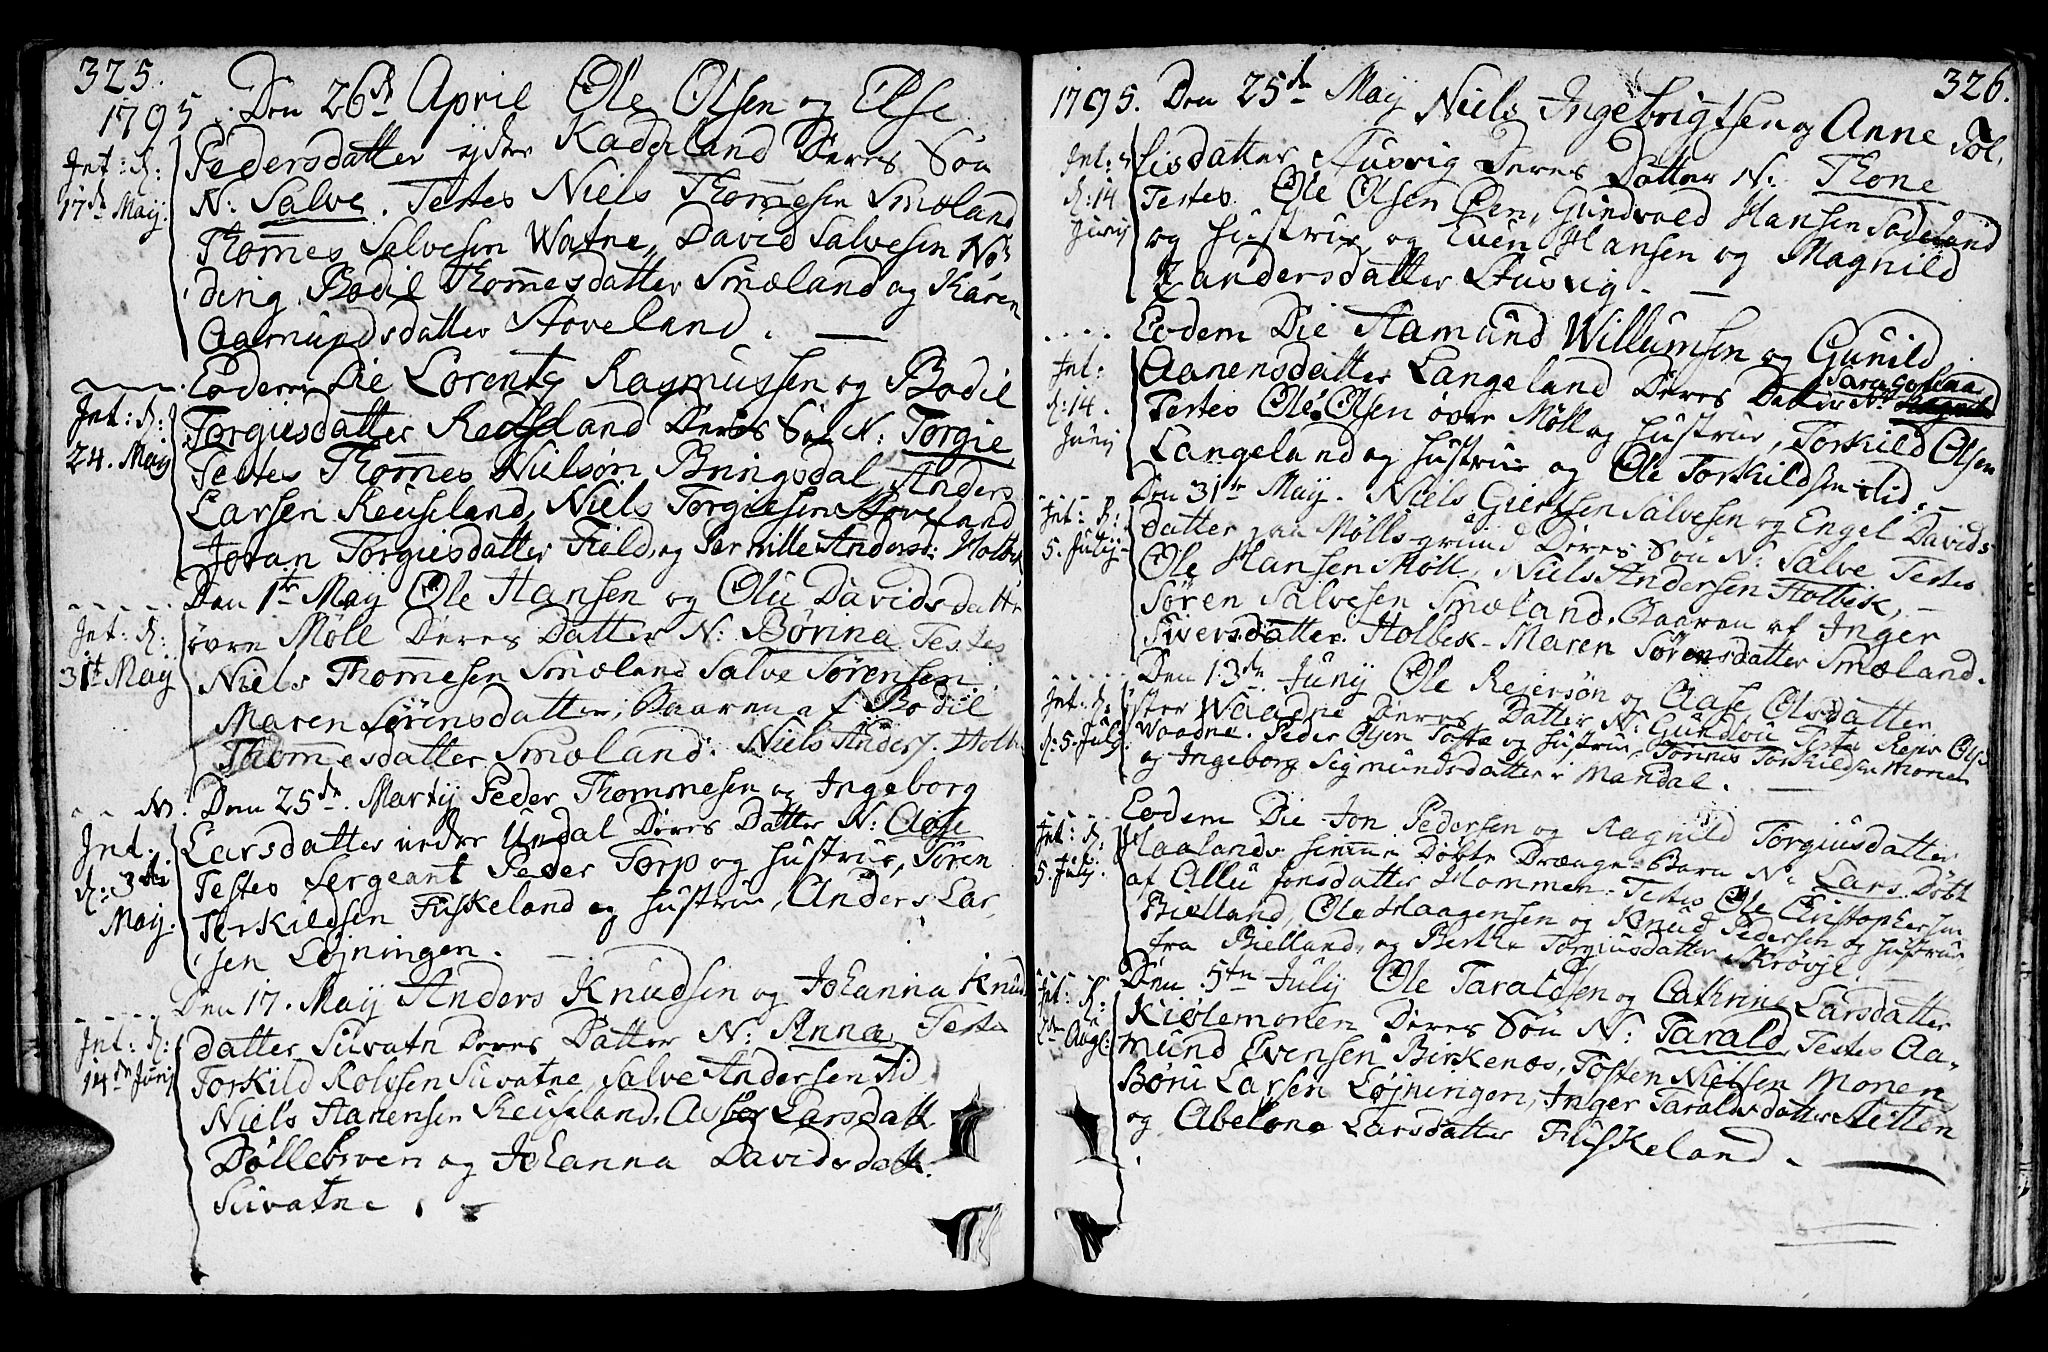 325.
1795. Den 26de April Ole Olsen og Else
Pedersdatter ydre Kaddeland Deres Søn
Int: K:
17de Maij.
N: Salve. Testes Niels Thom̄esen Smæland
Thom̄es Salvesen Watne, David Salvesen Nö
ding, Bodil Thom̄esdatter Smæland og Karen
Aamundsdatter Stoveland.
Eodem Die Lorentz Rasmussen og Bodil
Int: K:
24. Maij
Torgiusdatter Reuseland Deres Søn N: Torgie
Testes Thom̄es Nielsøn Bringsdal, Anders
Larsen Reuseland, Niels Torgiesen Stoveland
Joran Torgiusdatter Field, og Pernille Andersd: Holbek
Den 1ste Maij Ole Hansen og Olu Davidsdatter
Int: K:
31te Maij
övre Möll Deres Datter N: Börina Testes
Niels Thom̄esen Smæland Salve Sörensen
Maren Sörensdatter, Baaren af Bodil
Thom̄esdatter Smæland. Niels Anders. Holb
Den 25de Martij Peder Thommesen og Ingeborg
Int.
K: 3die
Maij.
Larsdatter nedre Undal Deres Datter N: Aase
Testes Sergeant Peder Torp og Hustrue, Sören
Terkildsen Fuskeland og Hustrue, Anders Lar
sen Løjningen.
Den 17. Maij Anders Knudsen og Johanna Knud
Int: K:
14de Junij
datter Suvatn Deres Datter N: Anna, Testes
Torkild Rolvsen Suvatne, Salve Andersen Lid
Niels Aanensen Reuseland, Larsdatt.
Döllebween og Johanna Davidsdatt.
Suvatne.
326.
1795. Den 25de Maij Niels Ingebrigtsen og Anne Tol
Int:
K: 14
Junij
lisdatter Stusvig Deres Datter N: Thone
Testes Ole Olsen Øen, Gundvald Hansen Sodeland
og Hustrue og Even Hansen og Magnild
Zandersdatter Stusvig.
Eodem Die Aamund Willumsen og Gunild
Int:
K: 14.
Junij
Aanensdatter Langeland Deres Datter N:
Testes Ole Olsen övre Möll og Hustrue, Torkild Olsen
Langeland og Hustrue og Ole Torkildsen Lid.
Den 31te Maij. Niels Giertsen Salvesen og Engel Davids
Int: K:
5. Julij
datter paa Mölls grund Deres Sön N: Salve Testes
Ole Hansen Möll, Niels Andersen Holbek,
Sören Salvesen Smæland. Baaren af Inger
Siversdatter Holbek. Maren Sörensdatter Smæland.
Den 13de Junij Ole Reiersøn og Aase Olsdatter
Int: K:
d: 5. Julij.
ster Waadne Deres Datter N: Gundlou Testes Reier Olss
Waadne. Peder Olsen Tofte og Hustrue, Tönnes Torkildsen Monen
og Ingeborg Sigmundsdatter i Mandal.
Eodem Die Jon Pedersen og Ragnild Torgiusdatter
Int: K:
5. Julij.
Haaland hiemme Döbte Drænge-Barn N: Lars Döbt
af Allu Jonsdatter Hommen. Testes Ole Christophersen
Bielland, Ole Haagensen og Knud Pedersen og Hustrue
fra Bielland, og Bertha Torgiusdatter Krövje.
Den 5ten Julij Ole Taraldsen og Cathrine Larsdatter
Int: K:
Aug:
Kiölemonen Deres Sön N: Tarald Testes Aa-
mund Evensen Birkenæs, Tosten Nielsen Monen
Böru Larsen Løjningen, Inger Taraldsdatter Stetten
og Abelone Larsdatter Fuskeland.